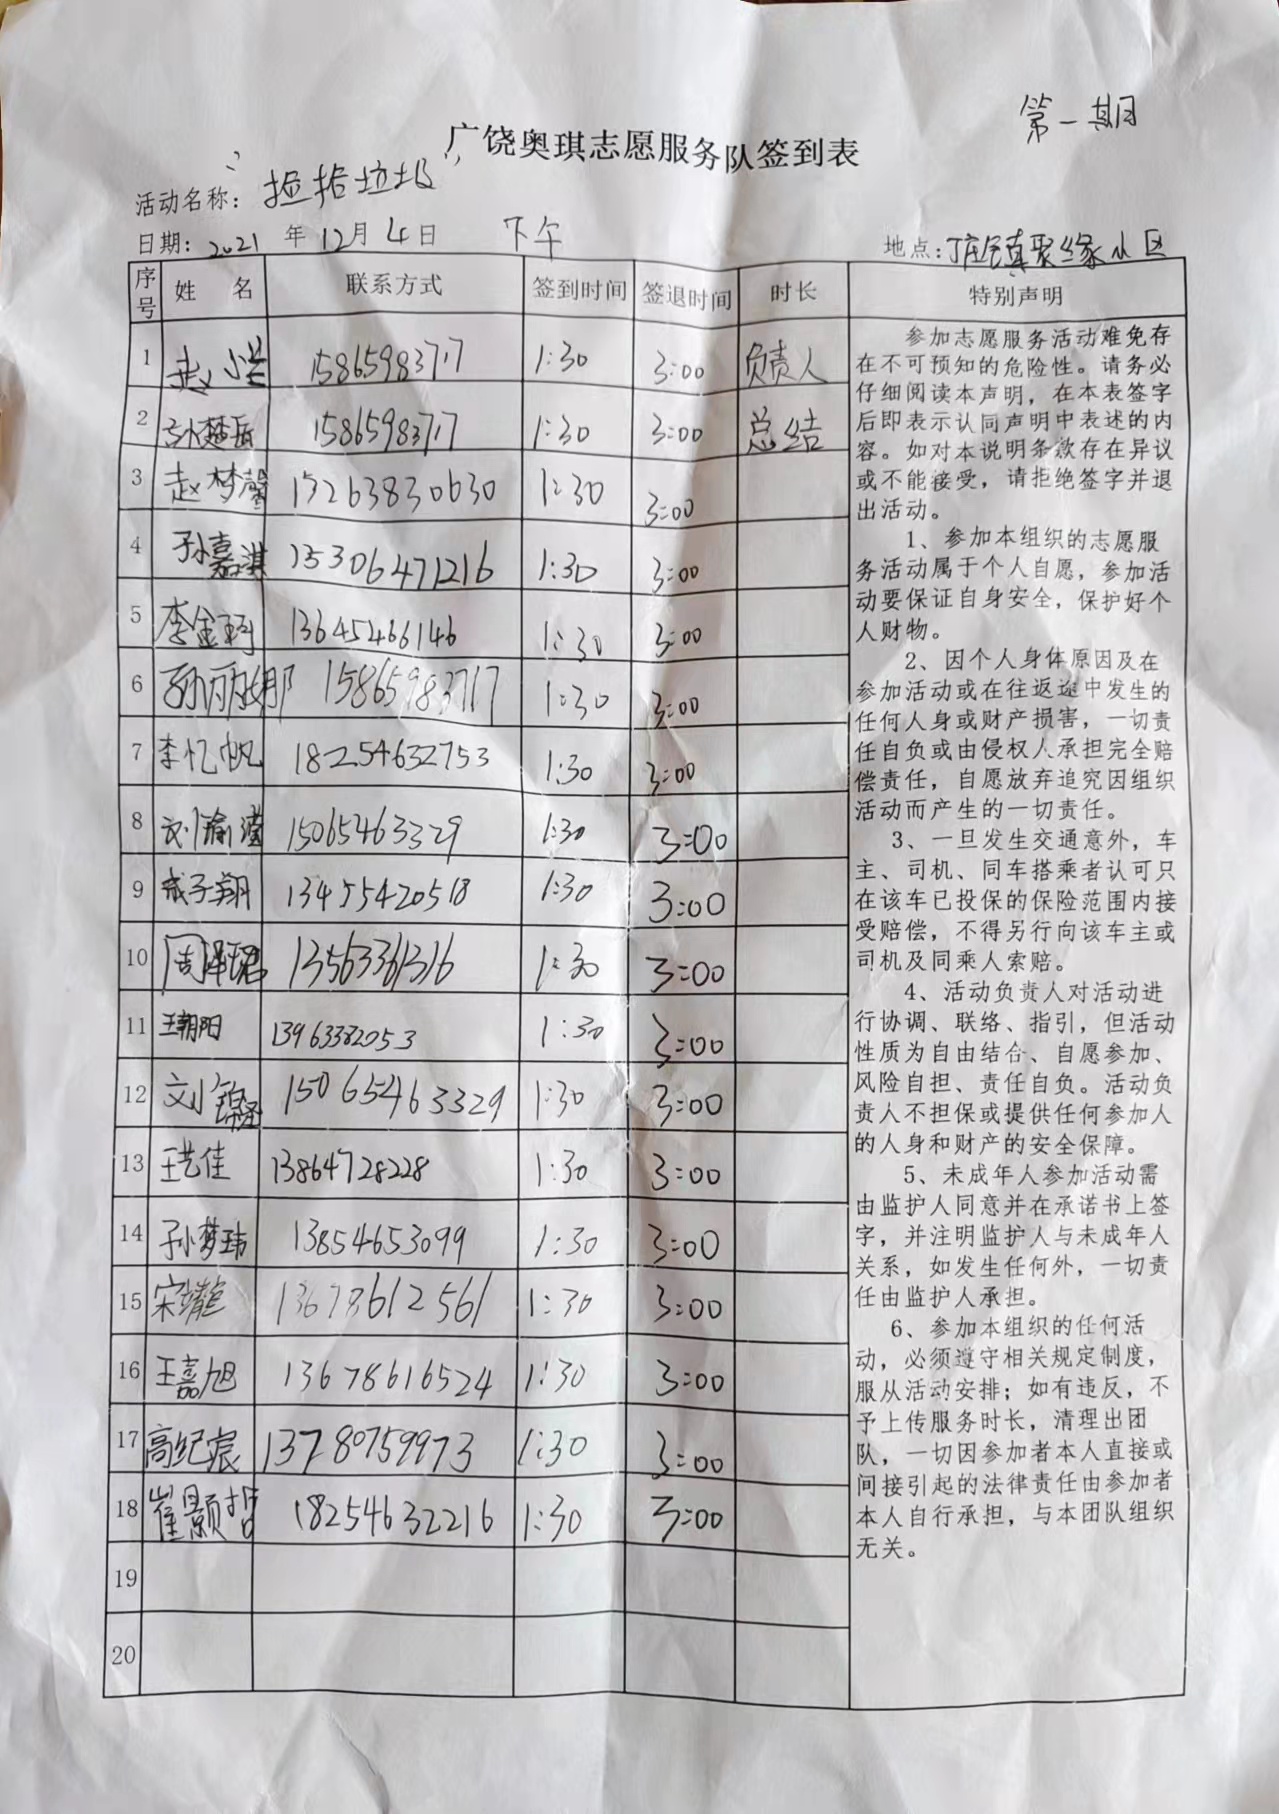 第一期
广饶奥琪志愿服务队签到表
活动名称：“捡拾垃圾”
日期：2021年12月4日 下午 地点：丁庄镇聚缘小区
序号 姓名 联系方式 签到时间 签退时间 时长 特别声明
1 赵小兰 15865983717 1:30 3:00 负责人
2 孙楚岳 15865983717 1:30 3:00 总结
3 赵梦馨 15263830630 1:30 3:00
4 孙嘉淇 15306471216 1:30 3:00
5 李金珂 13645466146 1:30 3:00
6 孙丽娜 15865983717 1:30 3:00
7 李忆帆 18254632753 1:30 3:00
8 刘瑜滢 15065463329 1:30 3:00
9 成子翔 13455420518 1:30 3:00
10 周泽珺 13563361316 1:30 3:00
11 王朝阳 13963382053 1:30 3:00
12 刘 15065463329 1:30 3:00
13 王艺佳 13864728228 1:30 3:00
14 孙梦玮 13854653099 1:30 3:00
15 宋 13678612561 1:30 3:00
16 王嘉旭 13678616524 1:30 3:00
17 高纪宸 13780759973 1:30 3:00
18 崔颢哲 18254632216 1:30 3:00
19
20
参加志愿服务活动难免存
在不可预知的危险性。请务必
仔细阅读本声明，在本表签字
后即表示认同声明中表述的内
容。如对本说明条款存在异议
或不能接受，请拒绝签字并退
出活动。
1、参加本组织的志愿服
务活动属于个人自愿，参加活
动要保证自身安全，保护好个
人财物。
2、因个人身体原因及在
参加活动或在往返途中发生的
任何人身或财产损害，一切责
任自负或由侵权人承担完全赔
偿责任，自愿放弃追究因组织
活动而产生的一切责任。
3、一旦发生交通意外，车
主、司机、同车搭乘者认可只
在该车已投保的保险范围内接
受赔偿，不得另行向该车主或
司机及同乘人索赔。
4、活动负责人对活动进
行协调、联络、指引，但活动
性质为自由结合、自愿参加、
风险自担、责任自负。活动负
责人不担保或提供任何参加人
的人身和财产的安全保障。
5、未成年人参加活动需
由监护人同意并在承诺书上签
字，并注明监护人与未成年人
关系，如发生任何外，一切责
任由监护人承担。
6、参加本组织的任何活
动，必须遵守相关规定制度，
服从活动安排；如有违反，不
予上传服务时长，清理出团
队，一切因参加者本人直接或
间接引起的法律责任由参加者
本人自行承担，与本团队组织
无关。